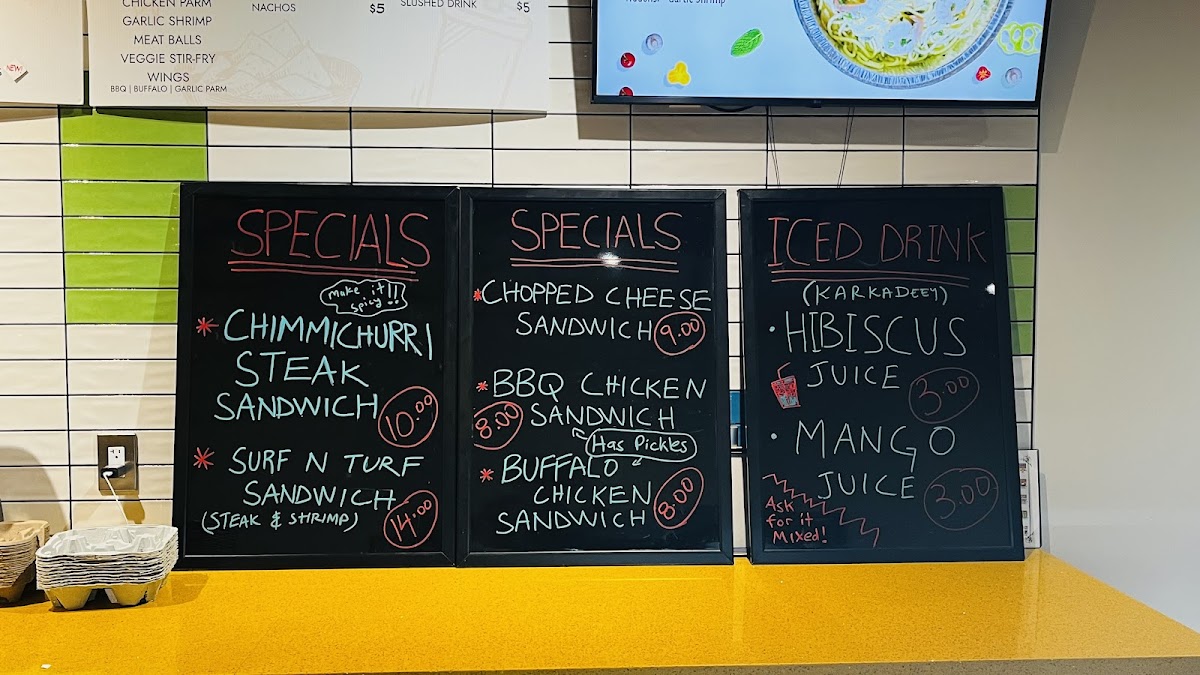 CHICKEN PARM
GARLIC SHRIMP
MEAT BALLS
VEGGIE STIR-FRY
WINGS
BBQ | BUFFALO | GARLIC PARM
NEW!
NACHOS $5
SLUSHED DRINK $5
SPECIALS
make it
spicy!!
* CHIMMICHURRI
STEAK
SANDWICH 10.00
* SURF N TURF
SANDWICH
(STEAK & SHRIMP) 14.00
SPECIALS
* CHOPPED CHEESE
SANDWICH 9.00
* BBQ CHICKEN
8.00 SANDWICH
Has Pickles
* BUFFALO
CHICKEN
SANDWICH 8.00
ICED DRINK
(KARKADEEY)
• HIBISCUS
JUICE 3.00
• MANGO
JUICE 3.00
Ask
for it
Mixed!